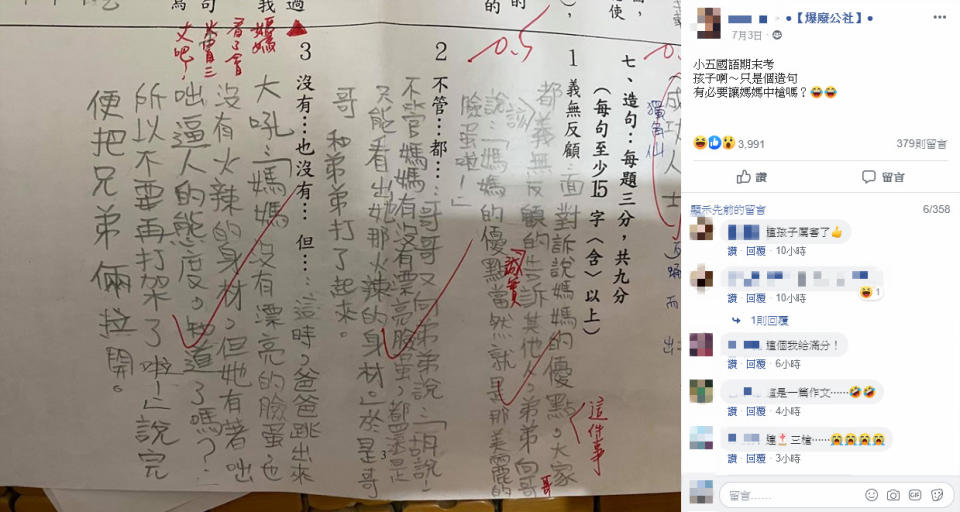 七、造句：每題三分，共九分
（每句至少15字（含）以上）
1 義無反顧
面對訴說媽媽的優點。大家
這件事
都義無反顧的告訴其他人，弟弟向哥
哥
說：「媽媽的優點當然就是那美麗的
誠實
臉蛋啦！」
-0.5
2 不管…都…：哥哥又向弟弟說：「胡說！
不管媽媽有沒有漂亮臉蛋，都還是
只能看出她那火辣的身材。」於是哥
哥和弟弟打了起來。
3 沒有…也沒有…但…：這時，爸爸跳出來
大吼：「媽媽沒有漂亮的臉蛋，也
沒有火辣的身材，但她有著咄
咄逼人的態度。知道了嗎？
所以不要再打架了啦！」說完
便把兄弟倆拉開。
媽媽
看了會
火冒三
丈吧！
3
【爆廢公社】
7月3日
小五國語期末考
孩子啊～只是個造句
有必要讓媽媽中槍嗎？😂😂
3,991
379則留言
讚
留言
顯示先前的留言
6/358
這孩子厲害了👍
讚 · 回覆 · 10小時
1
讚 · 回覆 · 10小時
1則回覆
這個我給滿分！
讚 · 回覆 · 6小時
這是一篇作文⋯⋯🤣🤣
讚 · 回覆 · 4小時
三槍⋯⋯😭😭😭😭
讚 · 回覆 · 3小時
留言……